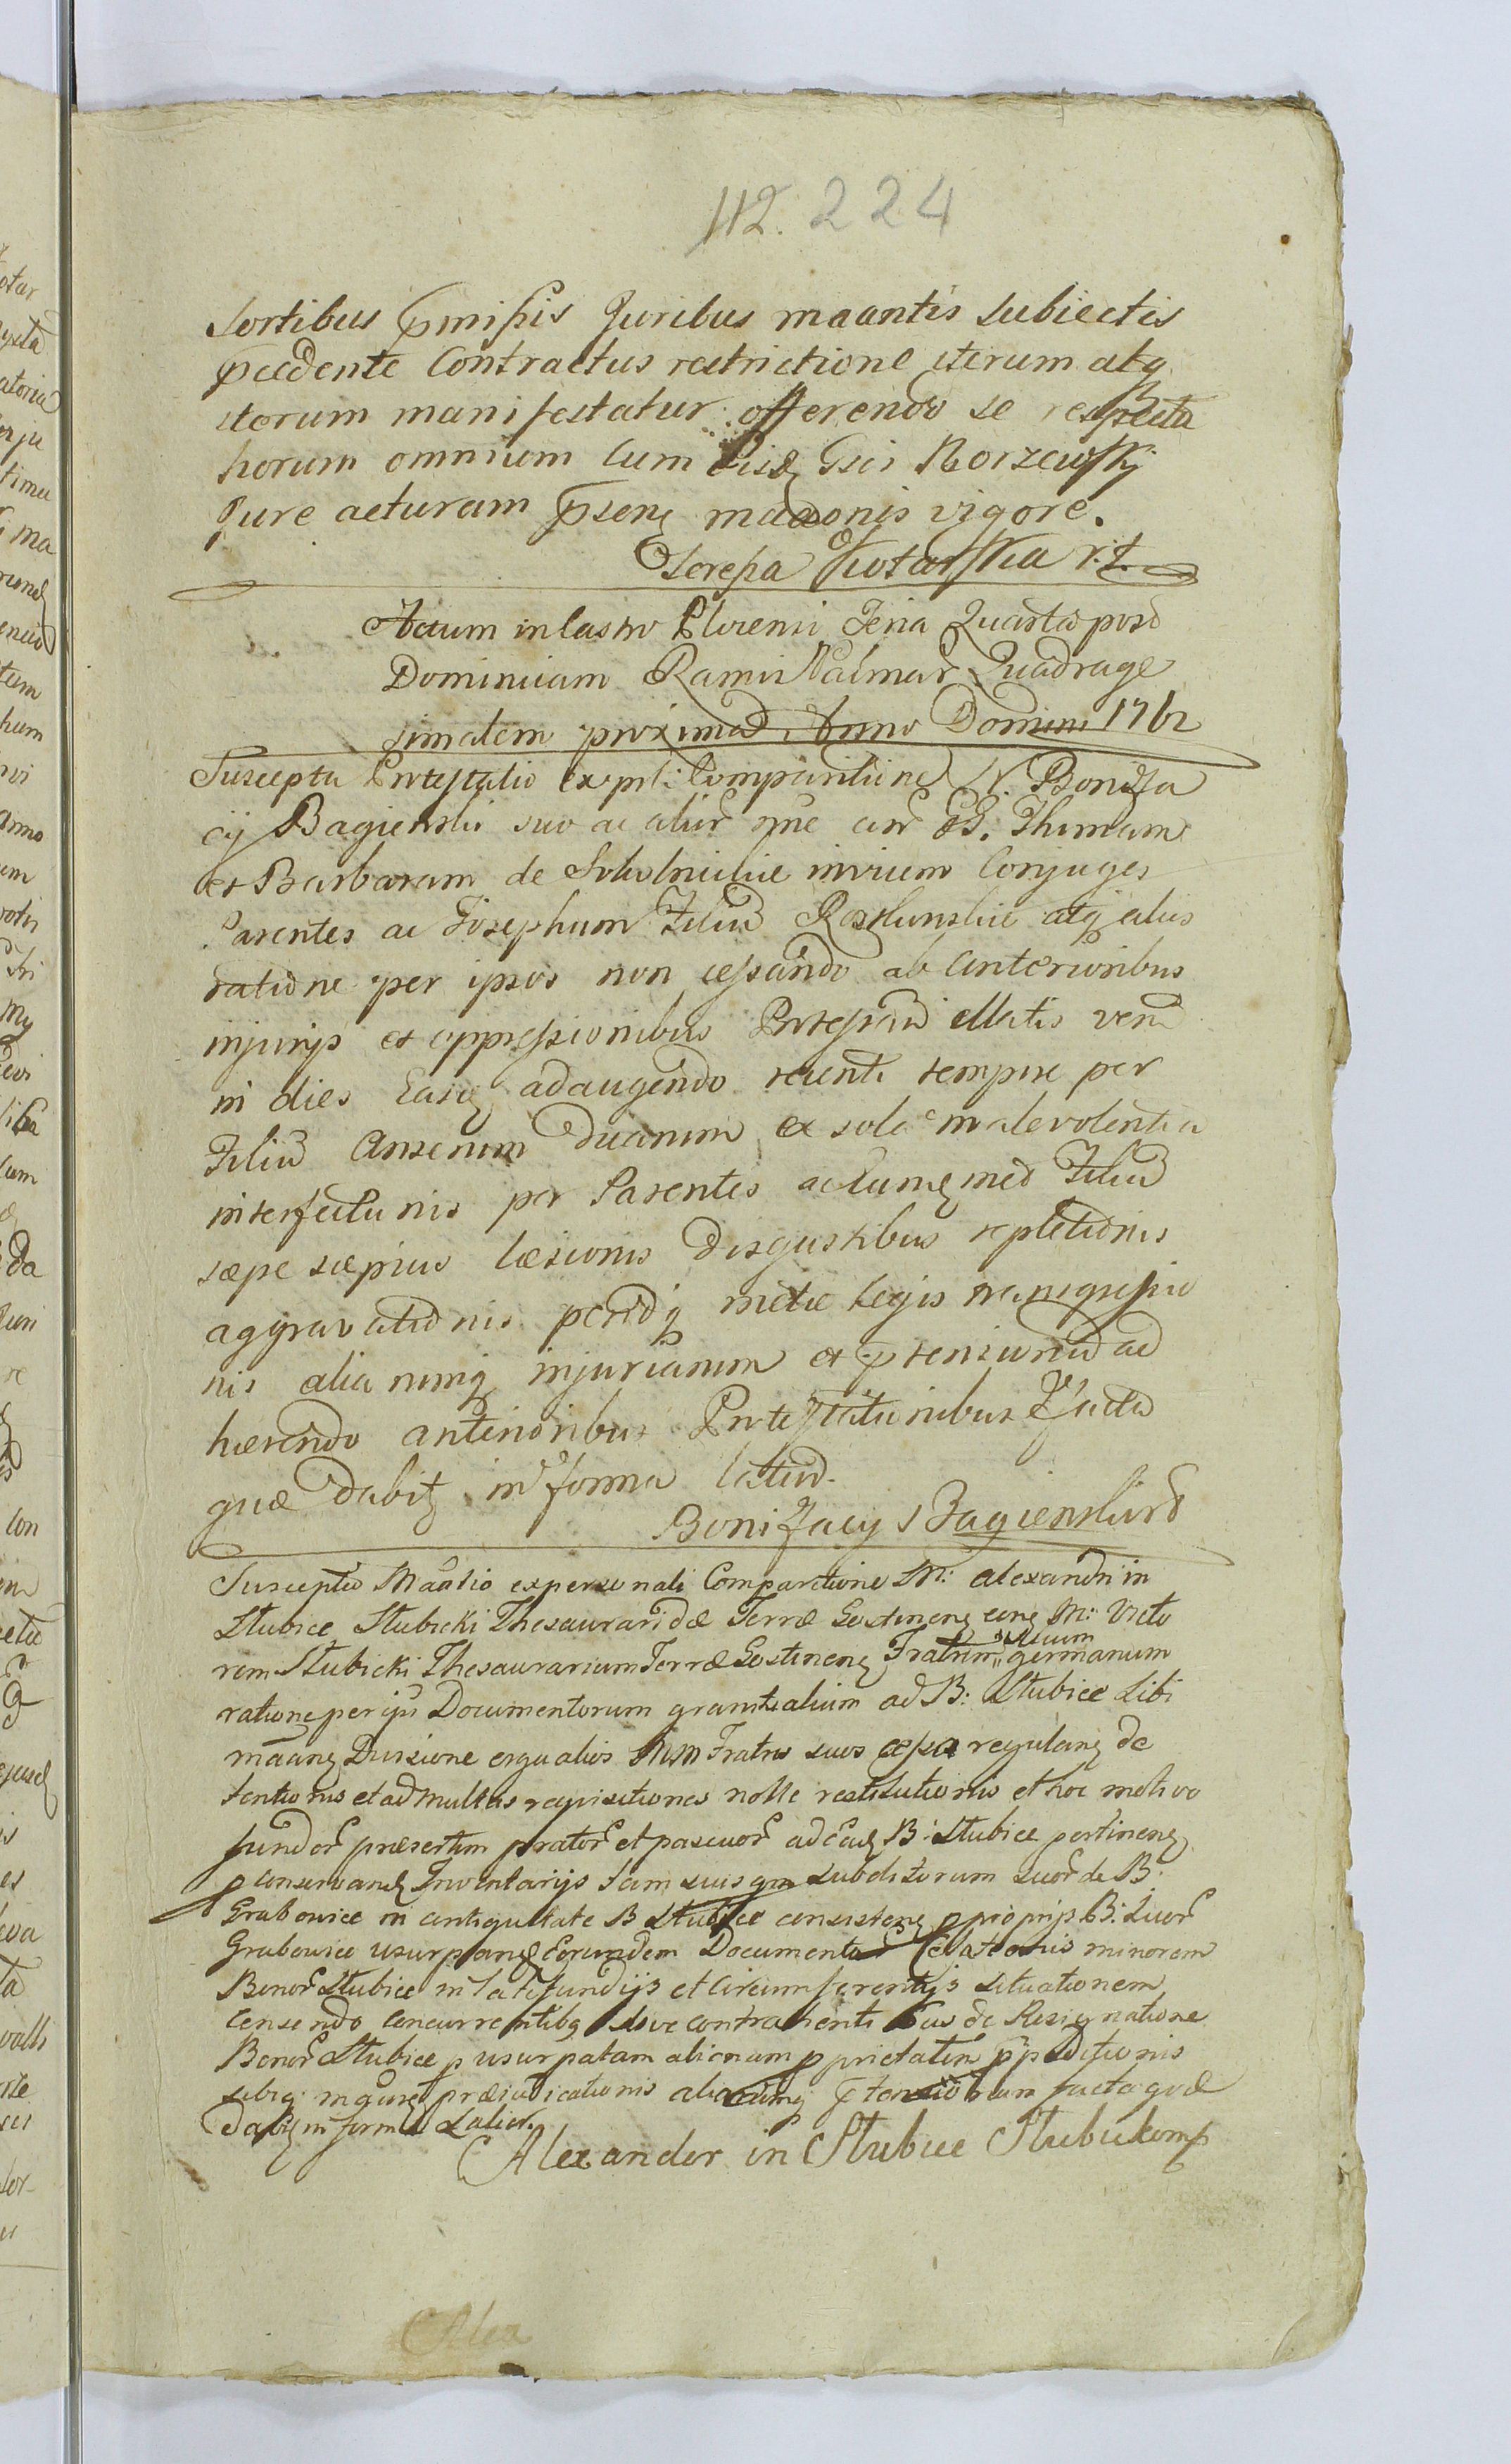 112. 224
sortibus pmissis Juribus maantis subiectis
pcedente Contractus restrictione iterum atq
iterum manifestatur: offerendo se respectu
horum omnium Cum Eisd Gsis Roszewskj
Jure acturam psens maaonis vigore.
Teressa Kotarska r.t.
Actum in Castro Plocensi Feria Quarta post
Dominicam Ramis Palmar Quadrage
simalem proximad Anno Domini 1762
Suscepta Protestatio ex prli Comparitione N. Bonifa
cij Bagienski suo ac alior nne con GG. Thomam
et Barbaram de invicem Conjuges
Parentes ac Josephum Filiũ atq aliis
ratione per ipsos non cessando ab anterioribus
injurijs et oppressionibus Protestanti illatis verũ
in dies Easq adaugendo recenti tempore per
Filiũ Anserum Duarum ex sola malevolentia
interfectionis per Parentes ac Eumq med Filiũ
sæpe sæpius læsionis Disgustibus repletionis
aggravationis pœndq metæ legis transgressio
nis aliarumq injuriarum et ptensionũ ad
hærendo anterioribus Protestationibus Facta
quæ Dabit in forma latiori
Bonifacy Bagienski
Suscepta Maatio ex personali Comparitione M: Alexandri in
Słubice Słubicki Thesauraridæ Terræ Gostinens cong M: Victo
rem Słubicki Thesaurarium Terræ Gostinens Fratrem suum germanum
ratione per ipsũ Documentorum granitialium ad B: Słubice sibi
maang Divisione erga alios Fratres suos regulans de
tentionis et ad multas requisitiones nolle restitutionis et hoc motivo
fundor præsertim prator et pascuor ad eaq B: Słubice pertinens
p conservand Inventarijs tam suis qm subditorum suor de B:
Grabowice in contiguitate B Słubice consistens p proprijs B: suor
Grabowice usurpand Eorundem Documentor Celationis minorem
Bonor Słubice in latifundijs et Circumferentijs situationem
Censendo Concurrentibq sive contrahenti de Resignatione
Bonor Słubice p usurpatam alienam pprietatem
sibiq præjudicationis aliarumq ptensionum facta quæ
Dabit in forma Latiori
Alexander in Słubice Słubicki mp
Alex